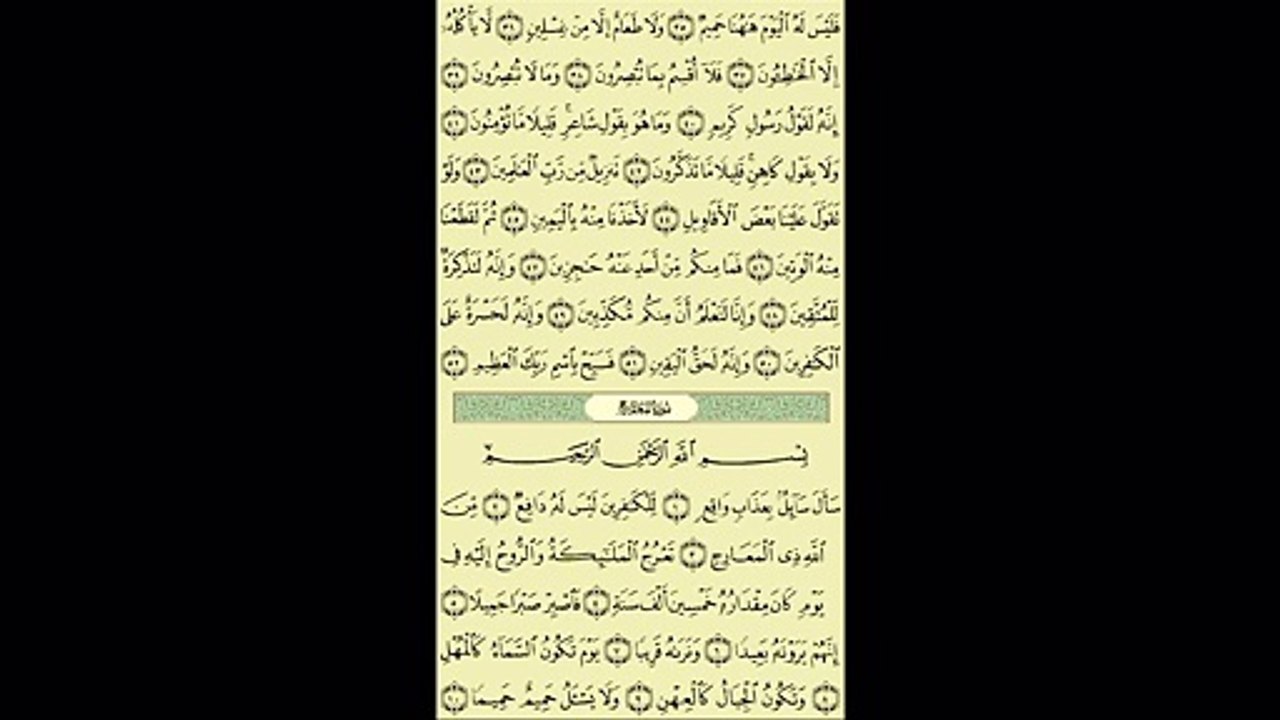 فَلَيْسَ لَهُ ٱلْيَوْمَ هَٰهُنَا حَمِيمٌ ٣٥ وَلَا طَعَامٌ إِلَّا مِنْ غِسْلِينٍ ٣٦ لَّا يَأْكُلُهُۥٓ
إِلَّا ٱلْخَٰطِـُٔونَ ٣٧ فَلَآ أُقْسِمُ بِمَا تُبْصِرُونَ ٣٨ وَمَا لَا تُبْصِرُونَ ٣٩
إِنَّهُۥ لَقَوْلُ رَسُولٍ كَرِيمٍ ٤٠ وَمَا هُوَ بِقَوْلِ شَاعِرٍ ۚ قَلِيلًا مَّا تُؤْمِنُونَ ٤١
وَلَا بِقَوْلِ كَاهِنٍ ۚ قَلِيلًا مَّا تَذَكَّرُونَ ٤٢ تَنزِيلٌ مِّن رَّبِّ ٱلْعَٰلَمِينَ ٤٣ وَلَوْ
تَقَوَّلَ عَلَيْنَا بَعْضَ ٱلْأَقَاوِيلِ ٤٤ لَأَخَذْنَا مِنْهُ بِٱلْيَمِينِ ٤٥ ثُمَّ لَقَطَعْنَا
مِنْهُ ٱلْوَتِينَ ٤٦ فَمَا مِنكُم مِّنْ أَحَدٍ عَنْهُ حَٰجِزِينَ ٤٧ وَإِنَّهُۥ لَتَذْكِرَةٌ
لِّلْمُتَّقِينَ ٤٨ وَإِنَّا لَنَعْلَمُ أَنَّ مِنكُم مُّكَذِّبِينَ ٤٩ وَإِنَّهُۥ لَحَسْرَةٌ عَلَى
ٱلْكَٰفِرِينَ ٥٠ وَإِنَّهُۥ لَحَقُّ ٱلْيَقِينِ ٥١ فَسَبِّحْ بِٱسْمِ رَبِّكَ ٱلْعَظِيمِ ٥٢
سُورَةُ المَعَارِجِ
بِسْمِ ٱللَّهِ ٱلرَّحْمَٰنِ ٱلرَّحِيمِ
سَأَلَ سَآئِلٌۢ بِعَذَابٍ وَاقِعٍ ١ لِّلْكَٰفِرِينَ لَيْسَ لَهُۥ دَافِعٌ ٢ مِّنَ
ٱللَّهِ ذِى ٱلْمَعَارِجِ ٣ تَعْرُجُ ٱلْمَلَٰٓئِكَةُ وَٱلرُّوحُ إِلَيْهِ فِى
يَوْمٍ كَانَ مِقْدَارُهُۥ خَمْسِينَ أَلْفَ سَنَةٍ ٤ فَٱصْبِرْ صَبْرًا جَمِيلًا ٥
إِنَّهُمْ يَرَوْنَهُۥ بَعِيدًا ٦ وَنَرَىٰهُ قَرِيبًا ٧ يَوْمَ تَكُونُ ٱلسَّمَآءُ كَٱلْمُهْلِ
٨ وَتَكُونُ ٱلْجِبَالُ كَٱلْعِهْنِ ٩ وَلَا يَسْـَٔلُ حَمِيمٌ حَمِيمًا ١٠